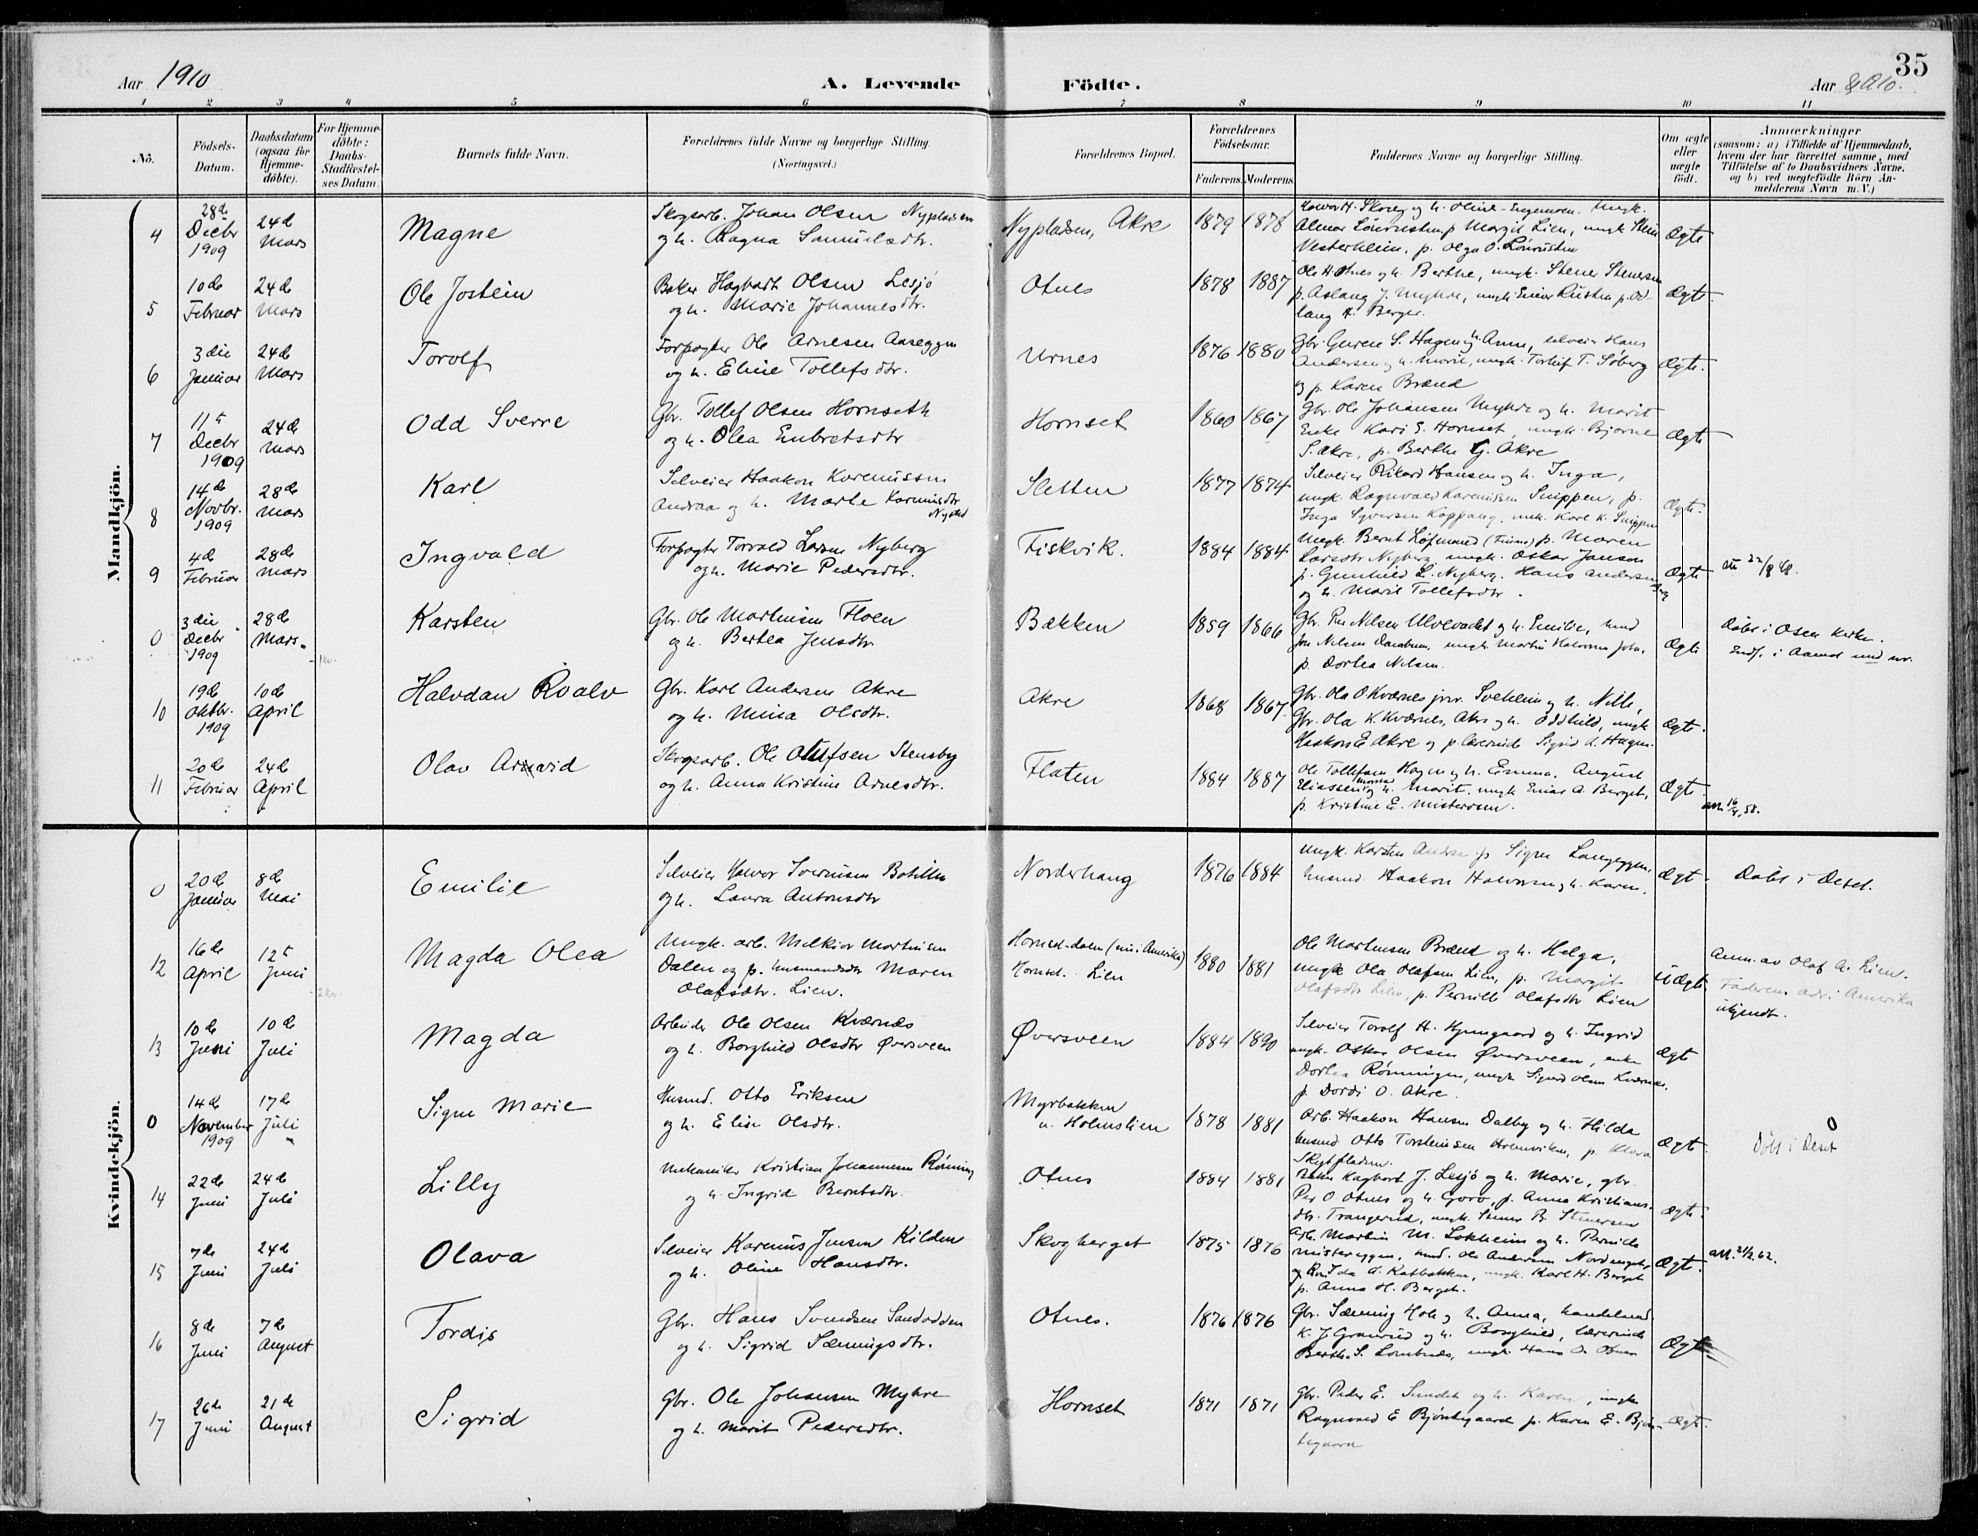 35
Aar 1910
A. Levende Födte.
Aar 1910.
1 2 3 4 5 6 7 8 9 10 11
No.
Födsels-Datum.
Daabsdatum (ogsaa for Hjemmedöbte).
For Hjemmedöbte: Daabs-Stadfæstelses Datum.
Barnets fulde Navn.
Forældrenes fulde Navne og borgerlige Stilling (Næringsvei.)
Forældrenes Bopæl.
Forældrenes Födselsaar.
Faderens. Moderens.
Faddernes Navne og borgerlige Stilling.
Om ægte eller uægte födt.
Anmærkninger
(saasom: a) i Tilfælde af Hjemmedaab,
hvem der har forrettet samme, med
Tilföielse af to Daabsvidners Navne,
og b) ved uægtefödte Börn Anmelderens Navn m. V.)
Mandkjön.
4 28de Decbr 1909 24de Mars Magne
Skogsarb. Johan Olsen Nypladsen
og h. Ragna Samuelsdtr.
Nypladsen, Akre 1879 1878
Vesterheim, p. Olga O.
Ægte
5 10de Februar 24de Mars Ole Jostein
Baker Hagbart Olsen Lesjö
og h. Marie Johannesdtr.
Otnes 1878 1887
Ole H Otnes og h. Berthe, ungk. Stener Stenersen
p. Aslaug J. Myhre, ungk. Einar
laug A. Berger.
Ægte.
6 3die Januar 24de Mars Torolf
Forpagter Ole Arnesen Aaseggen
og h. Eline Tollefsdtr.
Urnes 1876 1880
Gbr. S. Hagen og h. Anne, selveier Hans
Andersen og h. Marie, ungk. Torleif T. Söberg
og p. Karen Brænd
Ægte.
7 11te Decbr 1909 24de Mars Odd Sverre
Gbr. Tollef Olsen Hornseth
og h. Olea Enbretsdtr
Hornset 1860 1867
Gbr. Ole Johansen Myhre og h. Marit
Enke Kari E. Hornset, ungk. Bjarne
S. Akre, p. Berthe G. Akre
Ægte
8 14de Novbr. 1909 28de Mars Karl
Selveier Haakon Karenussen
Andraa og h. Marte Karenusdtr Nysted
Sletten 1877 1874
Selveier Rikard Hansen og h. Inga,
ungk. Ragnvald Karenussen Snippen, p.
Inga Syversen Koppang, ungk. Karl K. Snippen
Ægte.
9 4de Februar 28de Mars Ingvald
Forpagter Torvald Larsen Nyberg
og h. Marie Pedersdtr.
Fiskvik. 1884 1884
Ungk. Bernt Löfmoed p. Maren
Larsdtr Nyberg, ungk. Oskar Jonsson
p. Gunhild L. Nyberg. Hans Andersen
og h. Marit Tollefsdtr.
Ægte
0 3die Decbr 1909 28de Mars Karsten
Gbr. Ole Martinsen Floen
og h. Bertea Jensdtr.
Bækken 1859 1866
Gbr. Per Nilsen Ulvevadet og h. Emilie,
p. Dortea Nilsen.
Ægte
Döbt i Osen kirke.
Indf. i Aamot
10 19de Oktbr. 1909 10de April Halvdan Roalv
Gbr. Karl Andersen Akre
og h. Mina Olsdtr.
Akre 1868 1867
Gbr. Ola O Kværnes og h. Nille,
Gbr. Ola K. Kværnes, Akre og h. Oddhild, ungk.
Haakon E. Akre og p. lærerinde Sigrid A. Hagen.
Ægte.
11 20de Februar 24de April Olav Arvid
Skogsarb. Ole Olufsen Stensby
og h. Anna Kristine Arnesdtr.
Flaten 1884 1887
Ole Tollefsen Hagen og h. Emma. August
Eliassen og h. Marit, ungk. Einar A. Berget,
p. Kristine E. Misterosen.
Ægte.
Kvindekjön.
0 20de Januar 8de Mai Emilie
Selveier Halvor Syversen Botillen
og h. Laura Antonsdtr
Norderhaug 1876 1884
Ungk. Karsten Andraa p. Signe Langeggen,
husmd Haakon Halvorsen og h. Karen.
Ægt.
Döbt i Deset.
12 16de April 12te Juni Magda Olea
Ungk. arb. Melkior Martinsen
Dalen og p. husmandsdtr Maren
Olafsdtr. Lien.
Hornset-dalen (nu i Amerika)
Hornset. Lien
1880 1881
Ole Martinsen Brænd og h. Helga,
ungk Ola Olafsen Lien, p. Margit
Olafsdtr Lien, p. Pernille Olafsdtr Lien
Uægt.
Anm. av Olaf A. Lien.
Faderens adr. i Amerika
ukjendt.
13 10de Juni 10de Juli Magda
Arbeider Ole Olsen Kværnes
og h. Borghild Olsdtr Øversveen
Øversveen 1884 1890
Selveier Torolf H. Kjemgaard og h. Ingrid
ungk. Oskar Olsen Øversveen, enke
Dortea Rönningen, ungk Sigurd Olsen Kværnes,
p. Dordi O. Akre.
Ægt
0 14de November 1909 17de Juli Signe Marie
Husmd. Otto Eriksen
og h. Elise Olsdtr.
Myrbakken
u. Holmslien
1878 1881
Arb. Haakon Hansen Dalby og h. Hilda
husmd Otto Torsteinsen Holmviken, p. Klara
Skytpladsen.
Ægt.
0
Döbt i Deset
14 22de Juni 24de Juli Lilly
Urmaker Kristian Johannesen Röning
og h. Ingrid Berntsdtr.
Otnes 1884 1881
Baker Hagbart J. Lesjö og h. Marie, gbr.
Per O Otnes og h. Goro, p. Anna Kristians-
dtr. Trangerud, ungk. Stener B. Stenersen
Ægt.
15 7de Juni 24de Juli Olava
Selveier Karenus Jensen Kilden
og h. Oline Hansdtr.
Skogberget 1875 1876
Arb. Martin M. Lokheim og h. Pernille
Mistereggen, husmd. Ole Andersen Nordengen
og Ida A. Katbakken, ungk. Karl H. Berget
p. Anna H. Berget.
Ægte.
16 8de Juni 7de August Tordis
Gbr. Hans Svendsen Sandodden
og h. Sigrid Sæmingsdtr.
Otnes. 1876 1876
Gbr. Sæming Hole og h. Anna, handelsmd
K. J. Granrud og h. Borghild, lærerinde
Berthe S. Lombnæs, ungk. Hans O. Otnes
Ægt
17 26de Juni 21de August Sigrid
Gbr. Ole Johansen Myhre
og h. Marit Pedersdtr.
Hornset 1871 1871
Gbr. Peder E. Sundet og h. Karen, ungk
Ragnvald E Bjöntegaard p. Karen E. Bjön-
tegaard
Ægt.